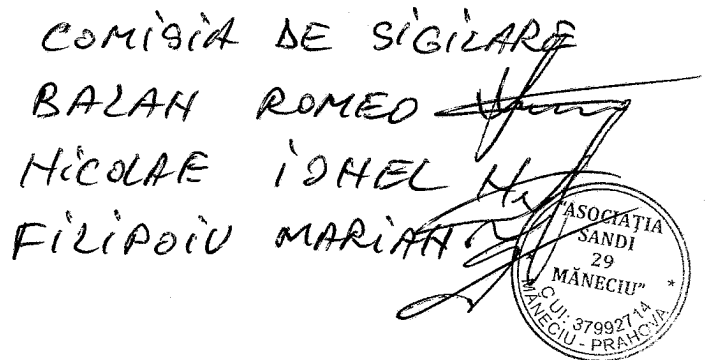 COMISIA DE SIGILARE
BALAN ROMEO
NICOLAE IONEL
FILIPOIU MARIAN
"ASOCIAȚIA
SANDI
29
MĂNECIU"
CUI: 37992714
MĂNECIU - PRAHOVA